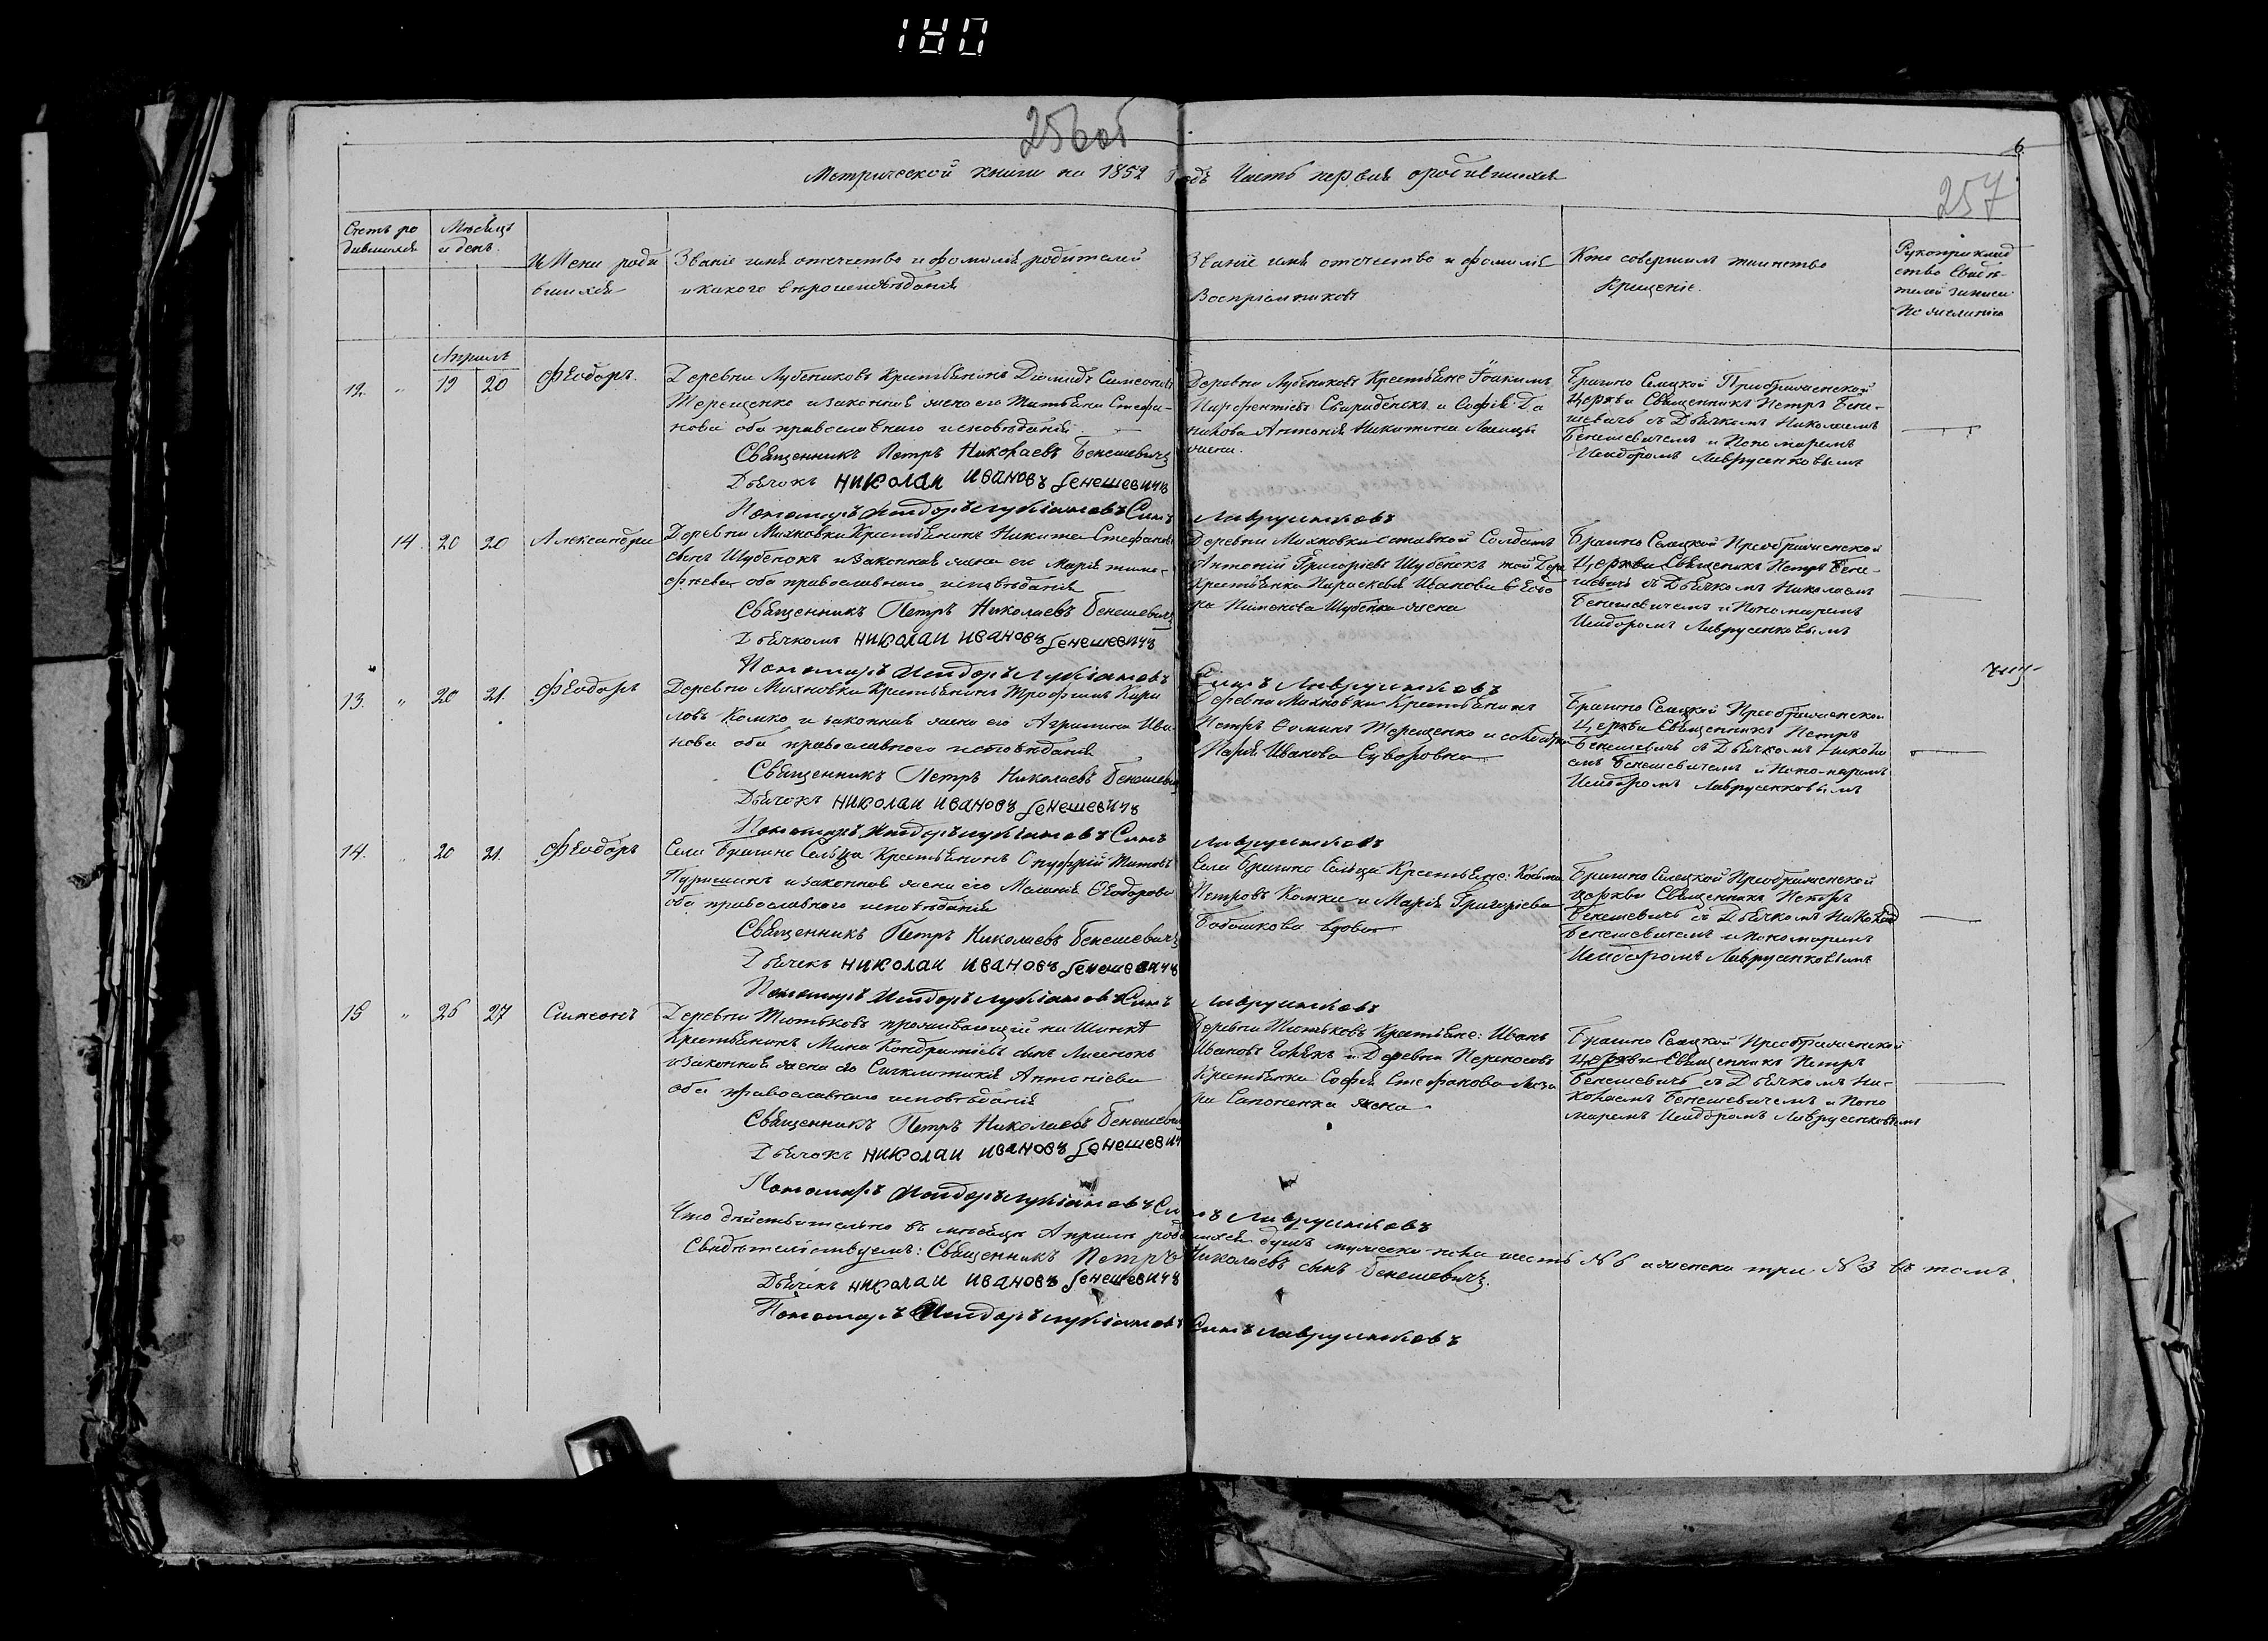 180
256об
6
257
Метрической книги на 1852 годъ Часть первая о родившихся
Счетъ ро
дившихся
Мѣсяцъ
и день.
Имена роди
вшихся
Званіе имя отечество и фамилія родителей
и какого вѣроисповѣданія
Званіе имя отечество и фамилія
Воспріемниковъ
Кто совершилъ таинство
Крещенія.
Рукоприклад
ство свидѣ-
телей записи
по желанію
Апрѣль
12. " 19 20 Феодоръ.
Деревни Лубениковъ Крестьянинъ Діомидъ Симеоновъ
Терещенко и законная жена его Татьяна Стефа-
нова оба православнаго исповѣданія.
Священникъ Петръ Николаевъ Бенешевичъ
Дьячокъ николаи ивановъ бенешевичъ
Пономарь Исидоръ лукіановъ Сынъ Лаврушковъ
Деревни Лубениковъ Крестьяне Іоакимъ
Свириденокъ и Софія Да
Антонія Никитина
жена.
Брагино Селецкой Преображенской
Церкви Священникъ Петръ Бене-
шевичъ съ Дьячкомъ Николаемъ
Бенешевичемъ и Пономаремъ
Исидоромъ Лаврусенковымъ
14. 20 20 Александра
Деревни Михновки Крестьянинъ Никита Стефановъ
сынъ Шубенокъ и законная жена его Марія Тимо-
феева оба православнаго исповѣданія
Священникъ Петръ Николаевъ Бенешевичъ
Дьячкомъ николаи ивановъ бенешевичъ
Пономарь Исидоръ лукіановъ Сынъ Лаврушковъ
Деревни Михновки отставной Солдатъ
Антоній Григоріевъ Шубенокъ той Дер
Крестьянка Параскевія Иванова
Пименова Шубенка жена
Брагино Селецкой Преображенской
Церкви Священникъ Петръ Бене-
шевичъ съ Дьячкомъ Николаемъ
Бенешевичемъ и Пономаремъ
Исидоромъ Лаврусенковымъ
13. " 20 21. Феодоръ
Деревни Михновки Крестьянинъ Трофимъ Кири
ловъ Комко и законная жена его Агрипина Ива-
нова оба православнаго исповѣданія
Священникъ Петръ Николаевъ Бенешевичъ
Дьячокъ николаи ивановъ бенешевичъ
Пономарь Исидоръ лукіановъ Сынъ Лаврушковъ
Деревни Михновки Крестьянинъ
Петръ Ѳоминъ Терещенко и солдатка
Марія Иванова Суворовка
Брагино Селецкой Преображенской
Церкви Священникъ Петръ
Бенешевичъ съ Дьячкомъ Никола
емъ Бенешевичемъ и Пономаремъ
Исидоромъ Лаврусенковымъ
14. " 20 21. Феодоръ
Села Брагино Сельца Крестьянинъ Онуфрій Титовъ
и законная жена его Меланія Феодорова
оба православнаго исповѣданія
Священникъ Петръ Николаевъ Бенешевичъ
Дьячекъ николаи ивановъ бенешевичъ
Пономарь Исидоръ лукіановъ Сынъ Лаврушковъ
Села Брагино Сельца Крестьяне: Козьма
Петровъ Комка и Марія Григоріева
Бобошкова вдова
Брагино Селецкой Преображенской
Церкви Священникъ Петръ
Бенешевичъ съ Дьячкомъ Николаемъ
Бенешевичемъ и Пономаремъ
Исидоромъ Лаврусенковымъ
15 " 26 27 Симеонъ
Деревни Тютьковъ проживающій на Шинкѣ
Крестьянинъ Мина Кондратіевъ сынъ Лисенокъ
и законная жена его Синклитикія Антоніева
оба православнаго исповѣданія
Священникъ Петръ Николаевъ Бенешевичъ
Дьячокъ николаи ивановъ бенешевичъ
Пономарь Исидоръ лукіановъ Сынъ Лаврушковъ
Деревни Тютьковъ Крестьяне: Иванъ
Ивановъ и Деревни Переносовъ
Крестьянка Софія Стефанова Лаза
ра Сапоненка жена
Брагино Селецкой Преображенской
Церкви Священникъ Петръ
Бенешевичъ съ Дьячкомъ Ни-
колаемъ Бенешевичемъ и Поно
маремъ Исидоромъ Лаврусенковымъ
Что дѣйствительно въ мѣсяцѣ Апрѣлѣ родившихся душъ мужеска пола шесть № 6 а женска три № 3 въ томъ.
Свидѣтельствуемъ: Священникъ Петръ Николаевъ сынъ Бенешевичъ.
Дьячкъ николаи ивановъ бенешевичъ
Пономарь Исидоръ лукіановъ Сынъ лаврушковъ